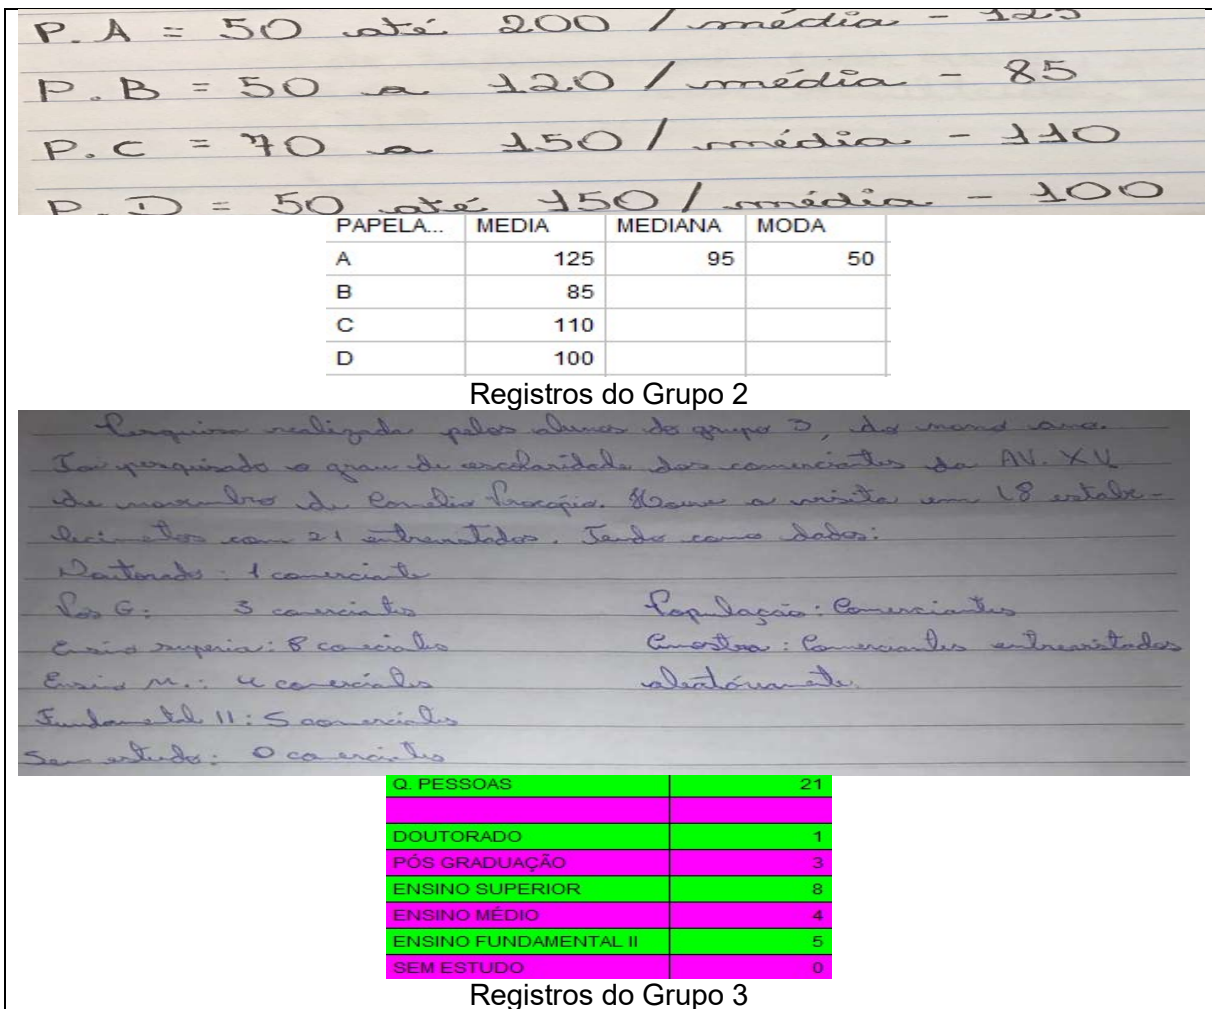 P.A = 50 até 200 / média - 125
P.B = 50 a 120 / média - 85
P.C = 70 a 150 / média - 110
P.D = 50 até 150 / média - 100
PAPELA... MEDIA MEDIANA MODA
A 125 95 50
B 85
C 110
D 100
Registros do Grupo 2
Pesquisa realizada pelos alunos do grupo 3, do nono ano.
Foi pesquisado o grau de escolaridade dos comerciantes da AV. XV
de novembro de Cornélio Procópio. Houve a visita em 18 estabe-
lecimetos com 21 entrevistados. Tendo como dados:
Doutorado: 1 comerciante
Pos G: 3 comerciantes População: Comerciantes
Ensino superior: 8 comerciantes Amostra: Comerciantes entrevistados
Ensino M.: 4 comerciantes aleatóriamente.
Fundamental II: 5 comerciantes
Sem estudo: 0 comerciantes
Q. PESSOAS 21
DOUTORADO 1
PÓS GRADUAÇÃO 3
ENSINO SUPERIOR 8
ENSINO MÉDIO 4
ENSINO FUNDAMENTAL II 5
SEM ESTUDO 0
Registros do Grupo 3